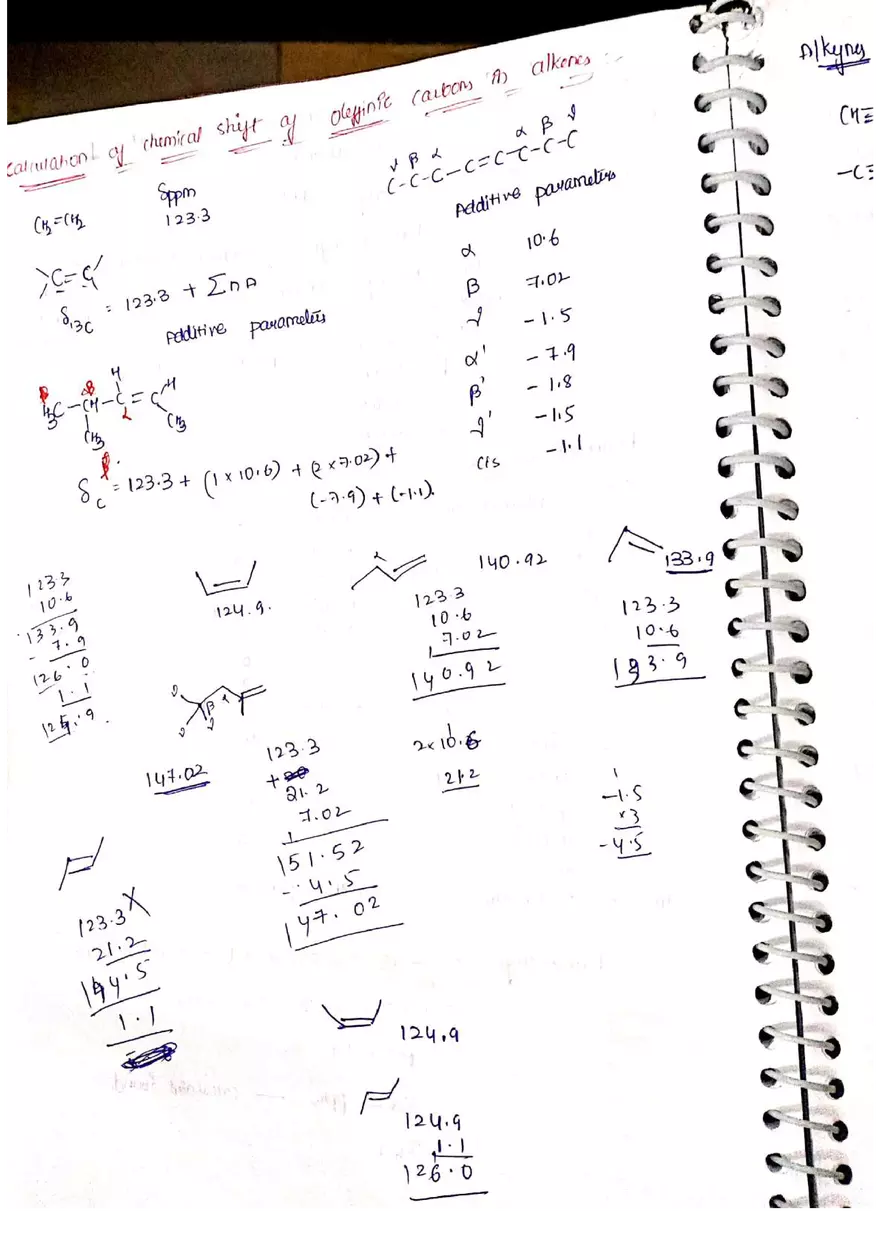 Calculation of chemical shift of olefinic carbons in alkenes :-
δppm
CH2=CH2 123.3
γ β α α β γ
C-C-C-C=C-C-C-C-C
Additive parameters
α 10.6
β 7.02
γ -1.5
α' -7.9
β' -1.8
γ' -1.5
cis -1.1
C=C
δ13C = 123.3 + ΣnA
Additive parameters
H H
H3C-CH-C=C
CH3 CH3
δC = 123.3 + (1 x 10.6) + (2 x 7.02) +
(-7.9) + (-1.1).
123.3
10.6
133.9
- 7.9
126.0
1.1
124.9
124.9.
α
140.92
123.3
10.6
7.02
140.92
133.9
123.3
10.6
133.9
γ β α
γ γ
147.02
123.3
+
21.2
7.02
151.52
- 4.5
147.02
2x10.6
21.2
-1.5
x3
-4.5
123.3 X
21.2
144.5
1.1
124.9
124.9
1.1
126.0
Alkynes
CH≡
-C≡